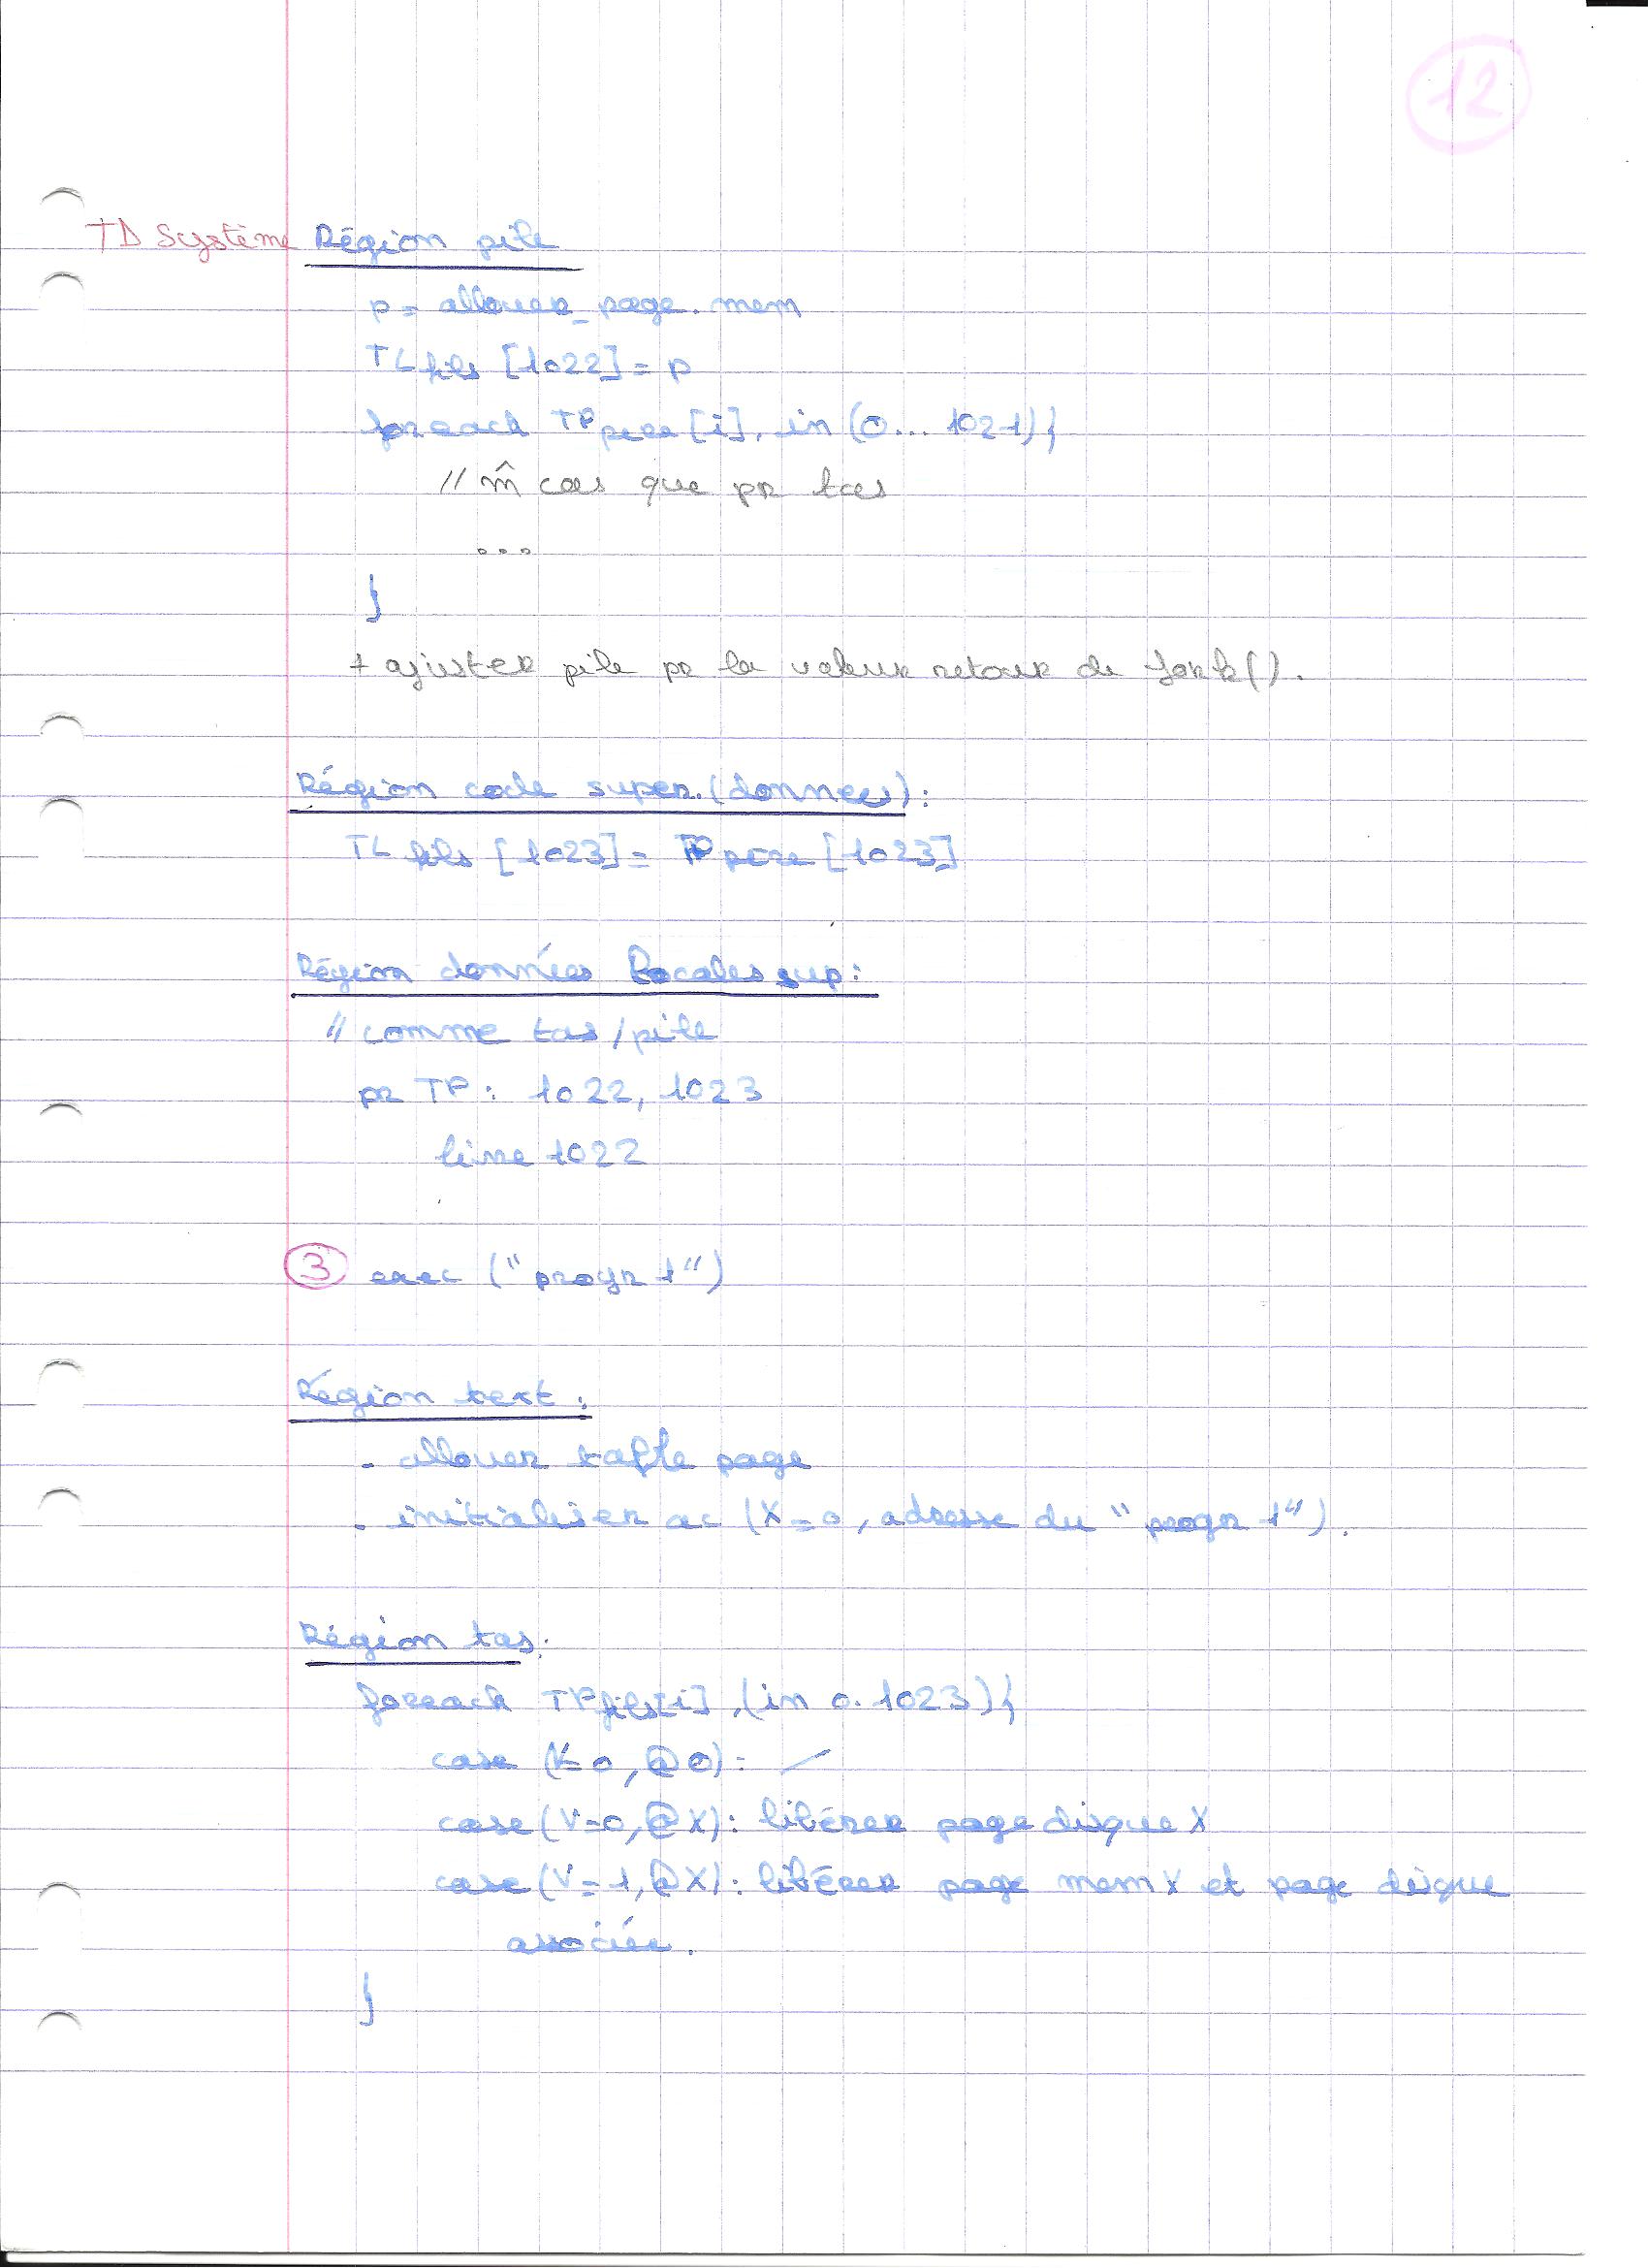 12
TD Système Région pile
p = allouer_page.mem
TL fils [1022] = p
foreach TP pere [i], in (0... 1021){
// m̂ cas que pr tas
...
}
+ ajuster pile pr la valeur retour de fork().
Région code super.(donnees):
TL fils [1023] = TP pere [1023]
Région données locales sup:
// comme tas/pile
pr TP: 1022, 1023
line 1022
3 exec ("progr 1")
Région text:
- allouer table page
- initialiser ac (X=0, adresse du "progr 1").
Région tas:
foreach TP fils[i], (in 0. 1023){
case (V=0, @0): /
case (V=0, @X): libérer page disque X
case (V=1, @X): libérer page mem X et page disque
associée.
}